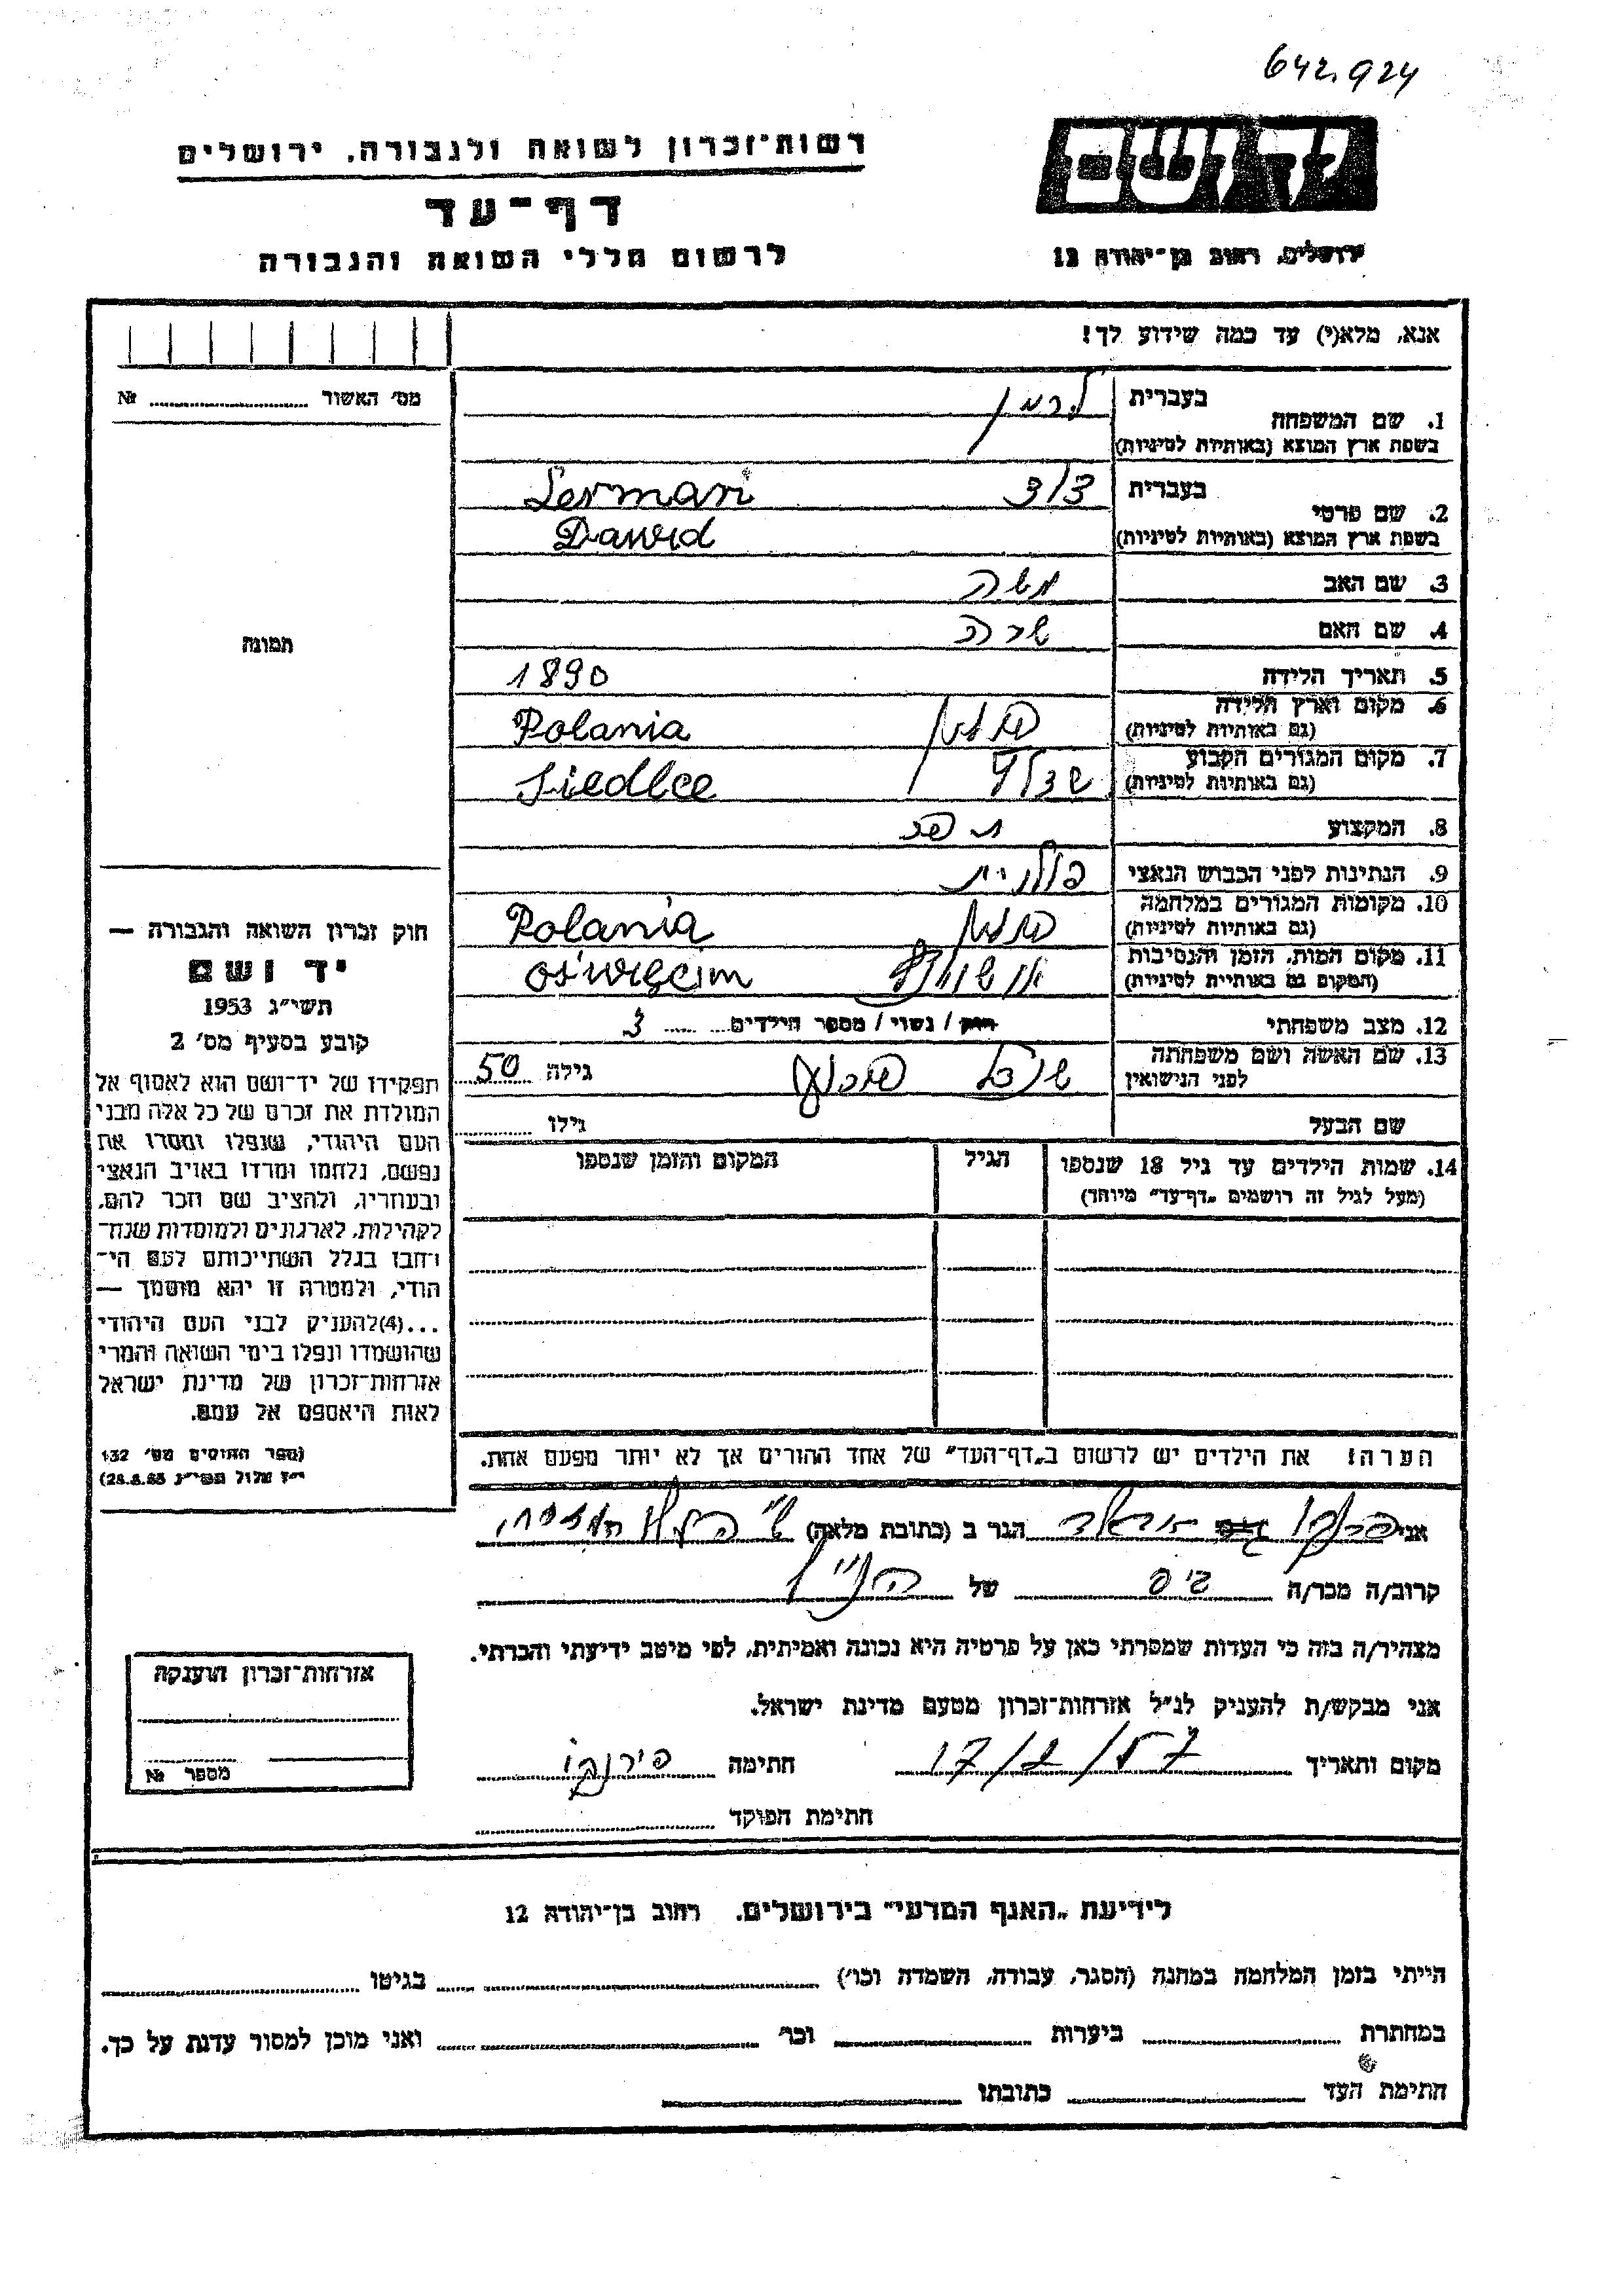 642.924
רשות־זכרון לשואה ולגבורה, ירושלים
יד ושם
דף־עד
לרשום חללי השואה והגבורה
ירושלים, רחוב בן־יהודה 12
אנא, מלא(י) עד כמה שידוע לך!
מס׳ האשור № 
1. שם המשפחה
בעברית לרמן
בשפת ארץ המוצא (באותיות לטיניות)
Lerman
2. שם פרטי
בעברית דוד
בשפת ארץ המוצא (באותיות לטיניות) Dawid
3. שם האב משה
4. שם האם שרה
5. תאריך הלידה 1890
6. מקום וארץ הלידה
(גם באותיות לטיניות) פולין Polania
7. מקום המגורים הקבוע
(גם באותיות לטיניות) שדלץ Siedlce
8. המקצוע
9. הנתינות לפני הכבוש הנאצי פולנית
10. מקומות המגורים במלחמה
(גם באותיות לטיניות) פולין Polania
11. מקום המות, הזמן והנסיבות
(המקום גם באותיות לטיניות) אושויץ Oświęcim
12. מצב משפחתי רווק / נשוי / מספר הילדים 3
13. שם האשה ושם משפחתה
לפני הנישואין גילה 50
שם הבעל גילו
14. שמות הילדים עד גיל 18 שנספו הגיל המקום והזמן שנספו
(מעל לגיל זה רושמים „דף־עד” מיוחד)
הערה! את הילדים יש לרשום ב„דף־העד” של אחד ההורים אך לא יותר מפעם אחת.
תמונה
חוק זכרון השואה והגבורה —
יד ושם
תשי״ג 1953
קובע בסעיף מס׳ 2
תפקידו של יד־ושם הוא לאסוף אל
המולדת את זכרם של כל אלה מבני
העם היהודי, שנפלו ומסרו את
נפשם, נלחמו ומרדו באויב הנאצי
ובעוזריו, ולהציב שם וזכר להם,
לקהילות, לארגונים ולמוסדות שנח־
רבו בגלל השתייכותם לעם הי־
הודי, ולמטרה זו יהא מוסמך —
...(4)להעניק לבני העם היהודי
שהושמדו ונפלו בימי השואה והמרי
אזרחות־זכרון של מדינת ישראל
לאות היאספם אל עמם.
(ספר החוקים מס׳ 132
י״ז אלול תשי״ג 28.8.53)
אני הגר ב (כתובת מלאה)
קרוב/ה מכר/ה של
מצהיר/ה בזה כי העדות שמסרתי כאן על פרטיה היא נכונה ואמיתית, לפי מיטב ידיעתי והכרתי.
אני מבקש/ת להעניק לנ״ל אזרחות־זכרון מטעם מדינת ישראל.
מקום ותאריך 17/2/57 חתימה
חתימת הפוקד
אזרחות־זכרון הוענקה
מספר №
לידיעת „האגף המדעי” בירושלים, רחוב בן־יהודה 12
הייתי בזמן המלחמה במחנה (הסגר, עבודה, השמדה וכו׳) בגיטו
במחתרת ביערות וכו׳ ואני מוכן למסור עדות על כך.
חתימת העד כתובתו